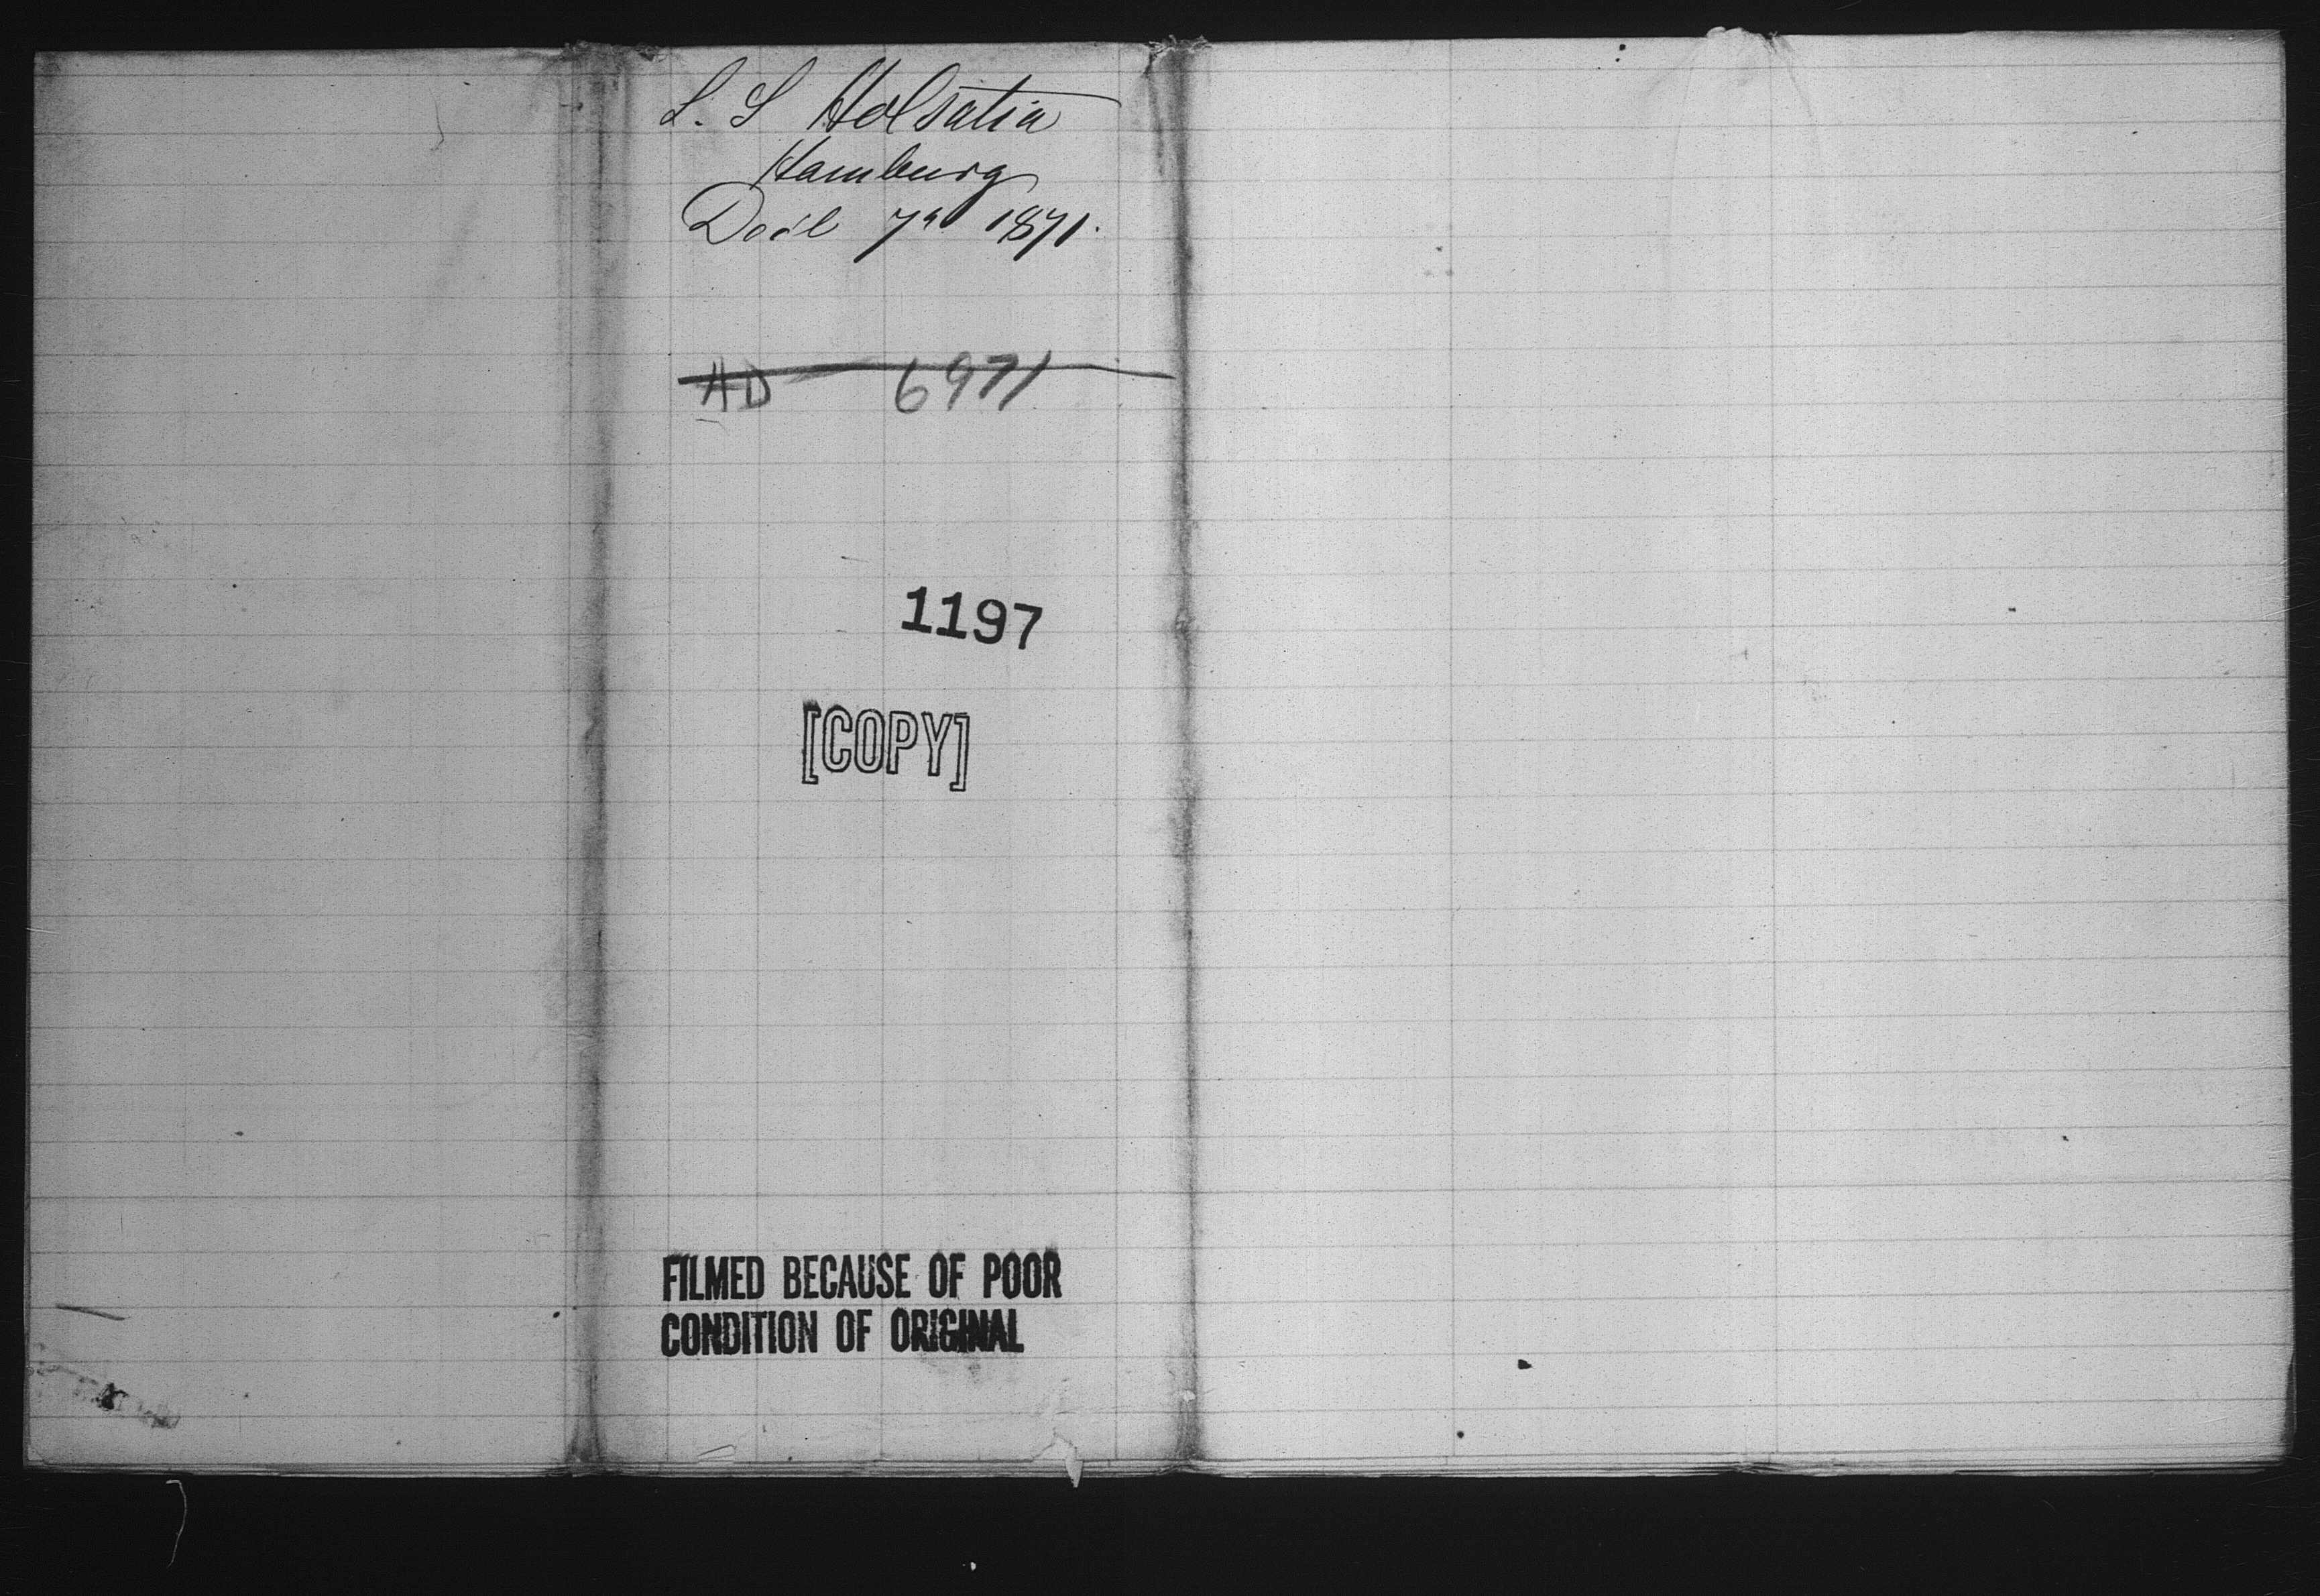 S. S Holsatia
Hamburg
7" 1871.
AD 6971
1197
[COPY]
FILMED BECAUSE OF POOR
CONDITION OF ORIGINAL